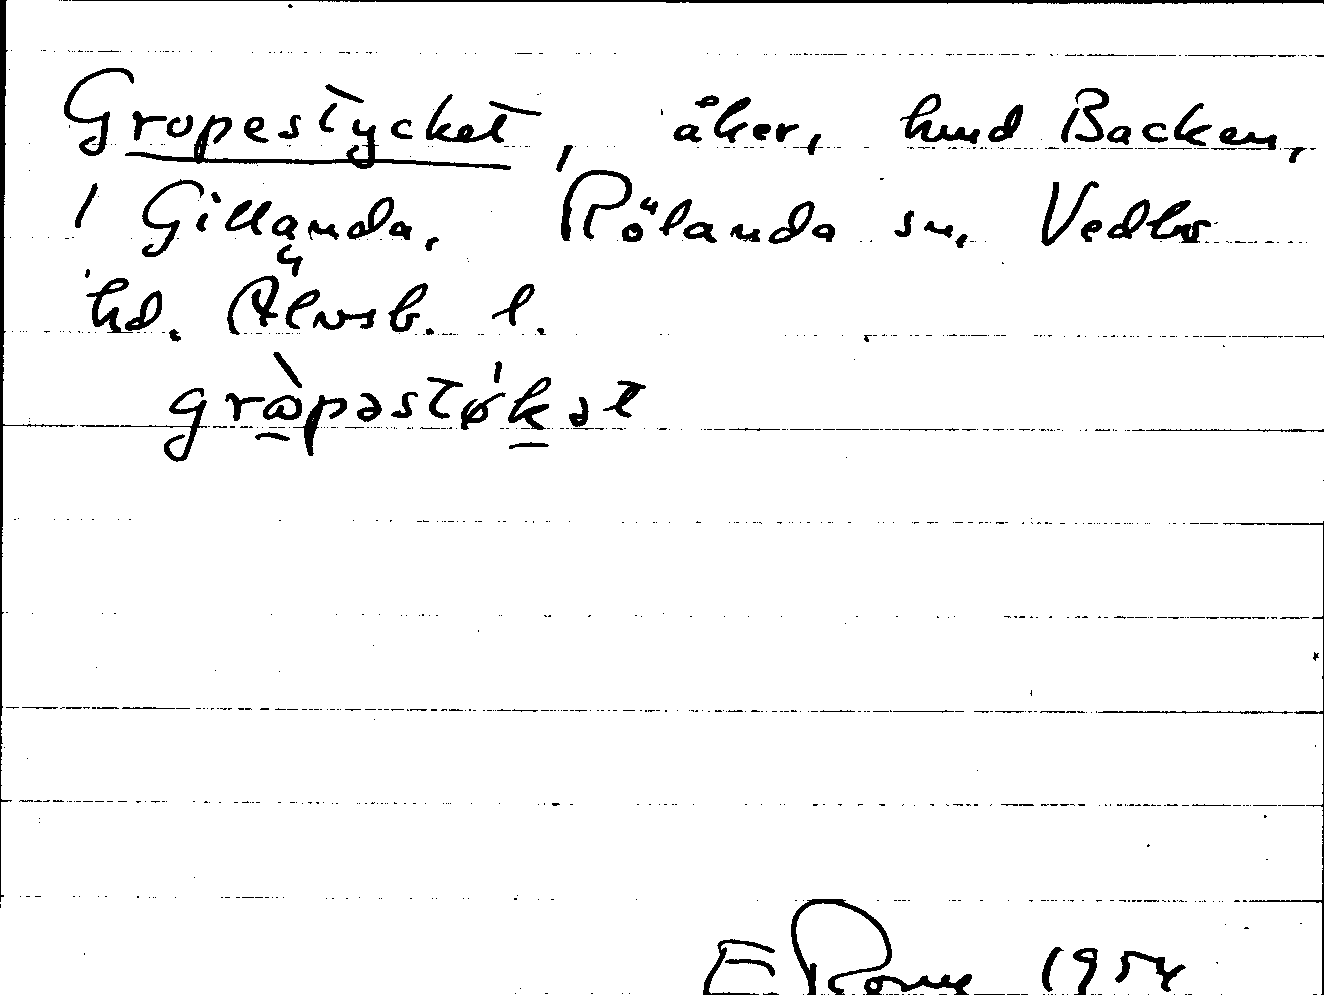 Gropestycket, åker, hmd Backen,
1 Gillanda, Rölanda sn, Vedbo
hd. Älvsb. l.
gròpəstǿkət
E 1954